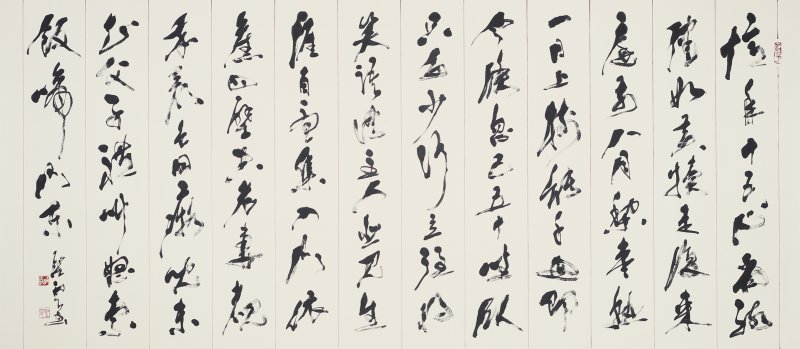 憶年十五心尚孩
健如黃犢走復來
庭前八月梨棗熟
一日上樹能千迴即
今倏忽已五十坐臥
只多少行立強將
笑語供主人悲見生
涯百憂集入門依
舊四壁空老妻覩
我顏色同癡兒未
知父子禮叫怒索
飯啼門東